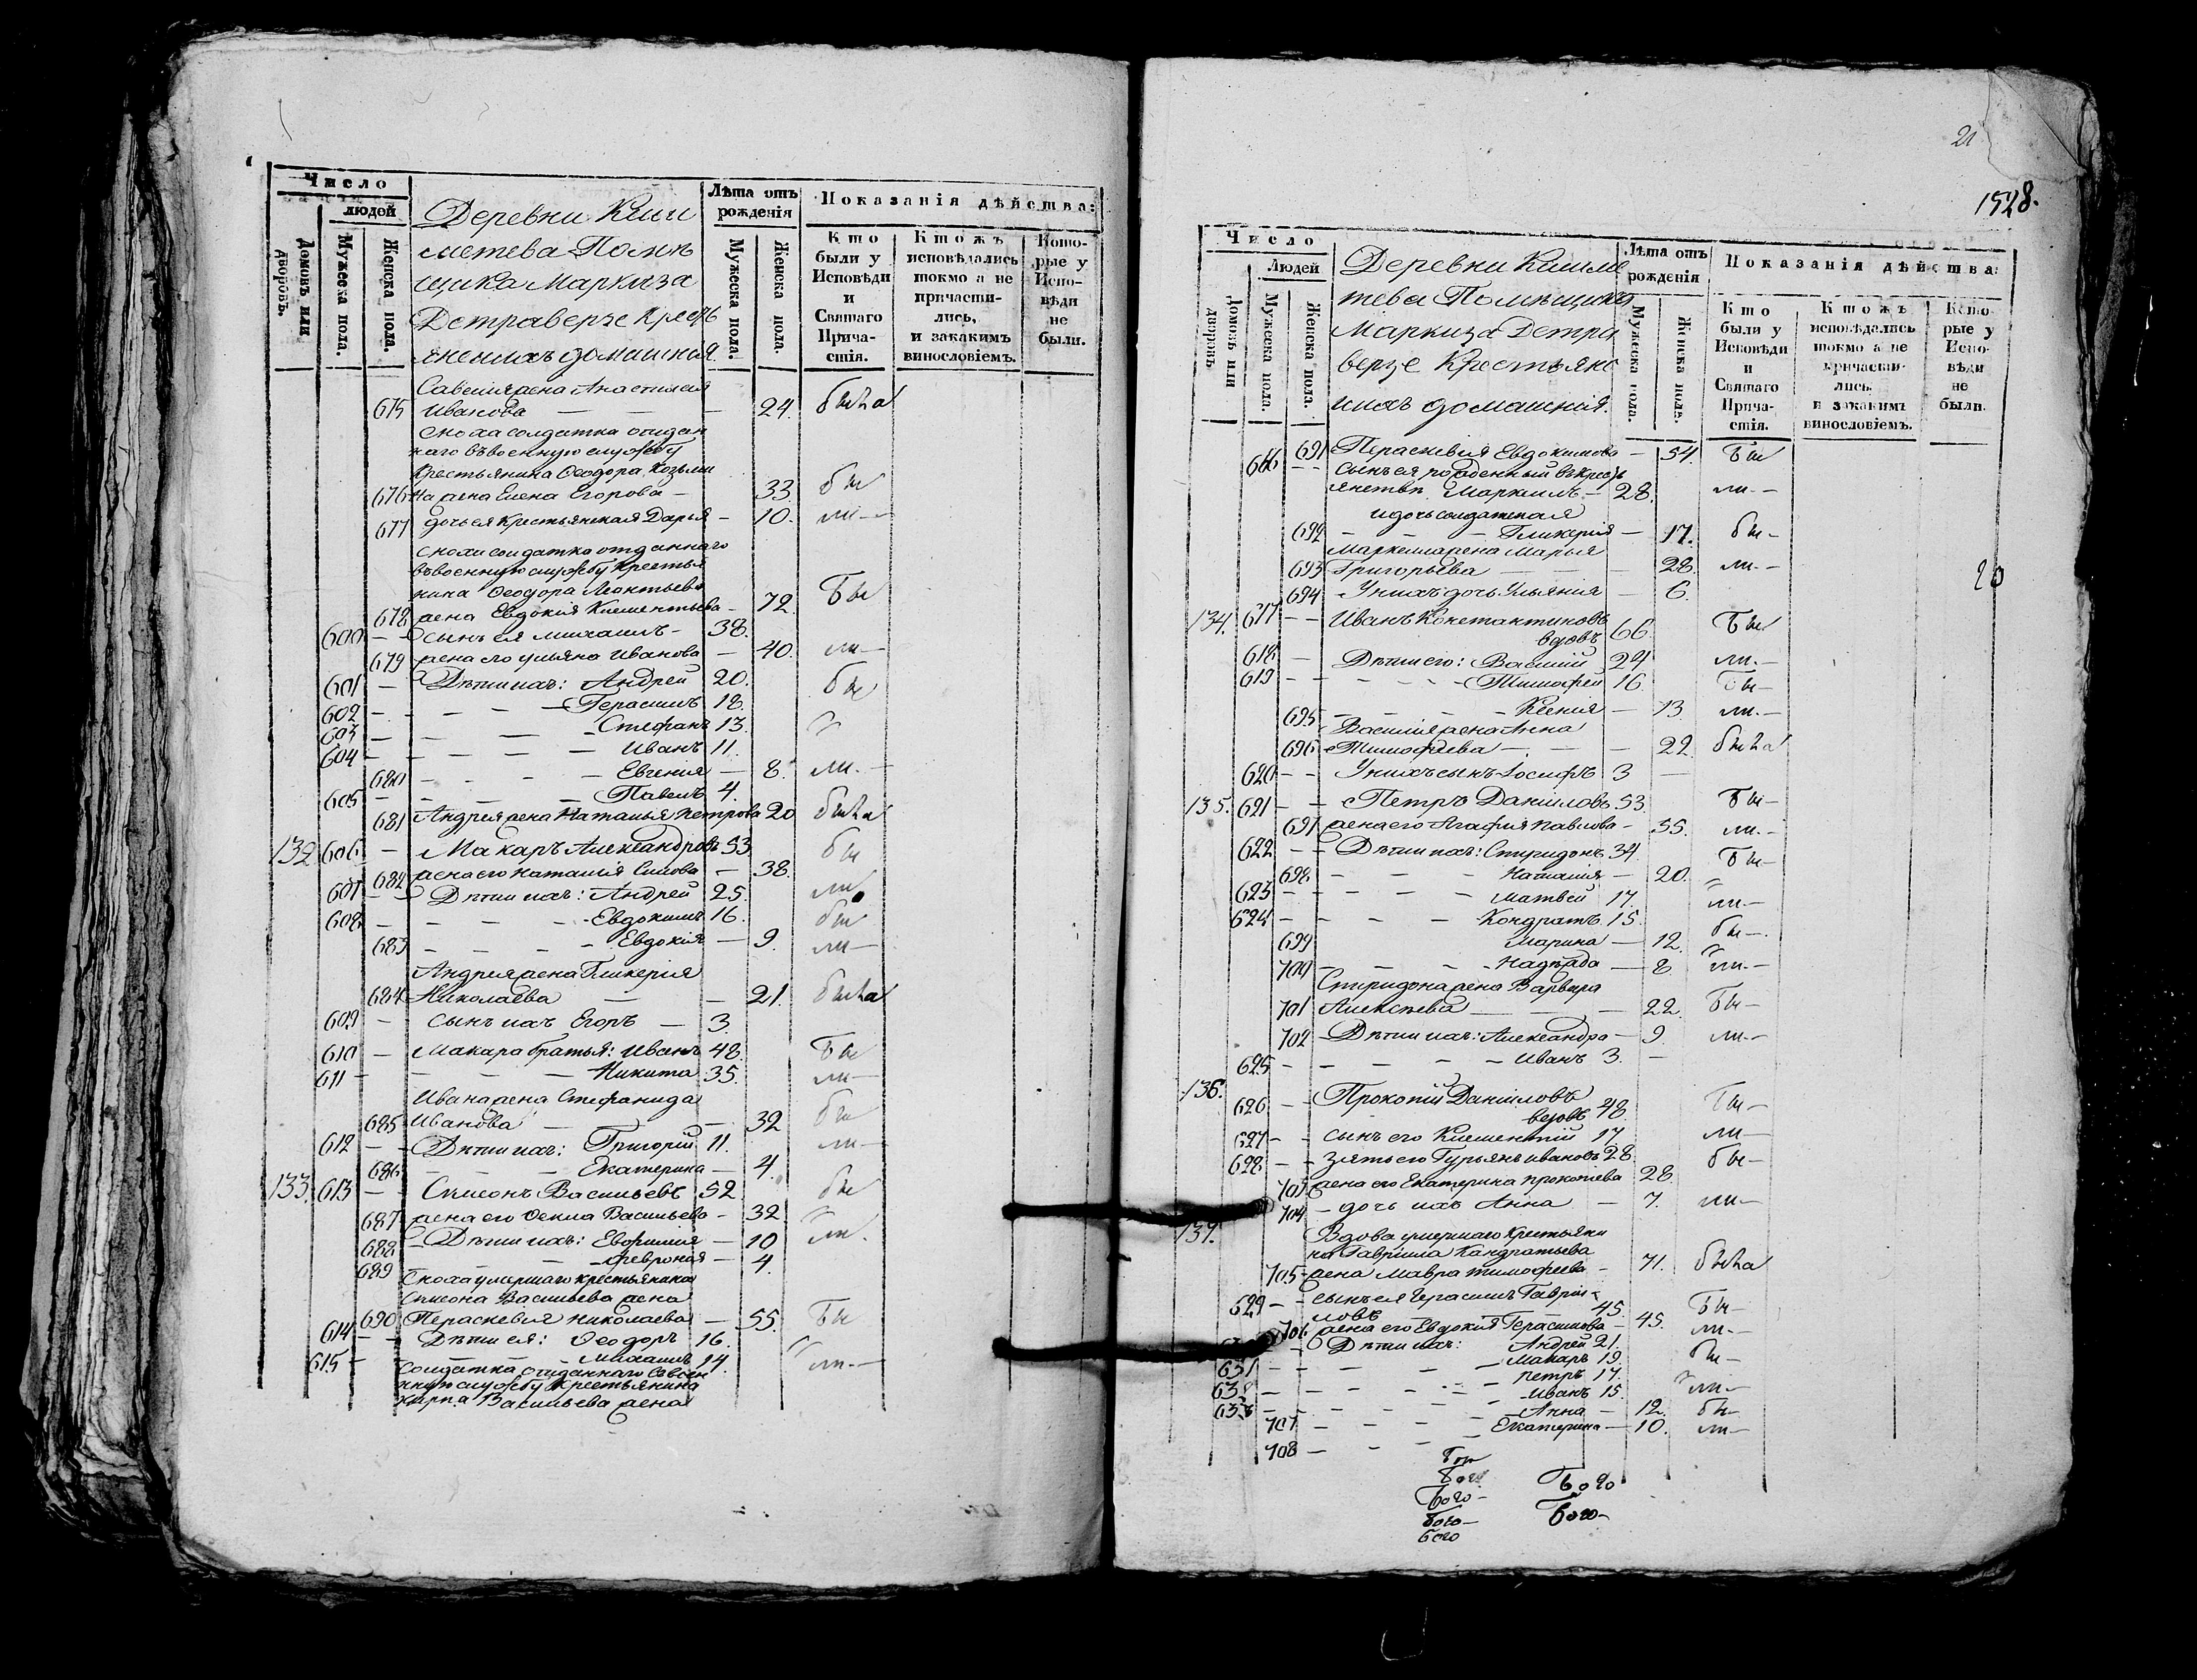 Число
людей
Домовъ или дворовъ.
Мужеска пола.
Женска пола.
Деревни Киш
метева Помѣ
щика Маркиза
Детраверзе Кресть
яне ихъ домашнія.
Лѣта отъ рожденія
Мужеска пола.
Женска пола.
Показанія дѣйства:
Кто были у Исповѣди и Святаго Причастія.
Ктожъ исповѣдались токмо а не причастились, и закакимъ винословіемъ.
Которые у Исповѣди не были.
Савелія жена Анастасія
675 Иванова — — — 24. была
Сноха солдатка отдан
наго въ военную службу
Крестьянина Ѳеодора Козьми
676 на жена Елена Егорова — 33. бы
677 дочь ея Крестьянская Дарья — 10. ли —
Снохи солдатка отданнаго
въ военную службу Крестья
нина Ѳеодора Леонтьева
678 жена Евдокія Климентьева — 72. Бы
600 — — сынъ ея Михаилъ — 38.
679 жена его Ульяна Иванова — 40. ли —
601 — Дѣти ихъ: Андрей 20. бы
602 — — — — Герасимъ 18.
603 — — — Стефанъ 13.
604 — — — — — Иванъ 11.
680 — — — — Евгенія — 8. ли. —
605 — — — — Павелъ 4.
681 Андрея жена Наталья Петрова 20 была
132 606 — Макаръ Александровъ 53 бы
682 жена его Наталія Силова — 38.
607 — Дѣти ихъ: Андрей 25. ли
608 — — — — Евдокимъ 16. бы
683 — — — — Евдокія — 9. ли —
Андрея жена Гликерія
684 Николаева — — 21. была
609 — сынъ ихъ Егоръ — 3.
610 — Макара братья: Иванъ 48. Бы
611 — — — — Никита 35. ли —
Ивана жена Стефанида
685 Иванова — — 32 бы
612 — — Дѣти ихъ: Григорій 11. ли —
686 — — — Екатерина — 4.
133. 613 — — Симеонъ Васильевъ 52. бы
687 жена его Ѳекла Васильева — 32
688 — Дѣти ихъ: Евфимія — 10 ли.
689 — — — Февронія — 4.
Сноха умершаго крестьянина
Симеона Васильева жена
690 Параскевія Николаева — 55. Бы
614 — — Дѣти ея: Ѳеодоръ 16.
615 — — — — Михаилъ 14. ли. —
Солдатка отданнаго въ воен
ную службу Крестьянина
Карпа Васильева жена
21
1528.
Число
Людей
Домовъ или дворовъ
Мужеска пола.
Женска пола.
Деревни Кишме
тева Помѣщика
Маркиза Детра
верзе Крестьяне
ихъ домашнія.
Лѣта отъ рожденія
Мужеска пола.
Женска пола.
Показанія дѣйства:
Кто были у Исповѣди и Святаго Причастія.
Ктожъ исповѣдались токмо а не причастились. и закакимъ винословіемъ.
Которые у Исповѣди не были.
691 Параскевія Евдокимова — 54. Бы
616 — — сынъ ея рожденный въ Крест
янствѣ Маркелъ — 28. ли. —
и дочь солдатская
692 — — — Гликерія — 17. бы —
Маркелла жена Марья
693 Григорьева — — — 28. ли. —
694 У нихъ дочь Ульянія — 6.
20
134. 617 — — Иванъ Константиновъ
вдовъ 66. Бы
618 — Дѣти его: Василій 24 ли. —
619 — — — — Тимофей 16. Бы —
695 — — — — Ксенія — 13. ли. —
Василія жена Анна
696 Тимофеева — — — 22. была
620 — — У нихъ сынъ Іосифъ 3 —
135. 621 — — Петръ Даниловъ 53. Бы —
697 жена его Агафія Павлова — 55. ли. —
622 — — Дѣти ихъ: Спиридонъ 34. Бы —
698 — — — Наталія — 20.
623 — — — — Матвей 17. ли —
624 — — — — Кондратъ 15. бы —.
699 Марина — 12.
700 — — — — Надѣжда — 8. ли. —
Спиридона жена Варвара
701 Алексѣева — — — 22. Бы —
702 Дѣти ихъ: Александра — 9. ли. —
625 — — — — Иванъ 3. —
136. 626 — — Прокопій Даниловъ
вдовъ 48. Бы —
627 — — сынъ его Климентій 17. ли —
628 — — Зять его Гурьянъ Ивановъ 28. бы —
703 жена его Екатерина Прокопіева 28.
704 — дочь ихъ Анна — 7. ли —
137. Вдова умершаго Крестьяни
на Гаврила Кандратьева
705 жена Мавра Тимофеева — 71. была
629 — — сынъ ея Герасимъ Гаври
ловъ 45. Бы —
706 жена его Евдокія Герасимова — 45. ли. —
— Дѣти ихъ: Андрей 21.
631 — — — — Макаръ 19. бы —
Петръ 17.
638 — — — — — Иванъ 15. ли —
633 — — — — — Анна — 12. бы —
707 — — — — Екатерина — 10. ли —
708 — — — —
Бого Бого
Бого —
Бого — Бого —
Бого